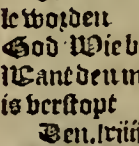 le worden
God Wie b
Want den m
is verstopt
Den.lxiiij